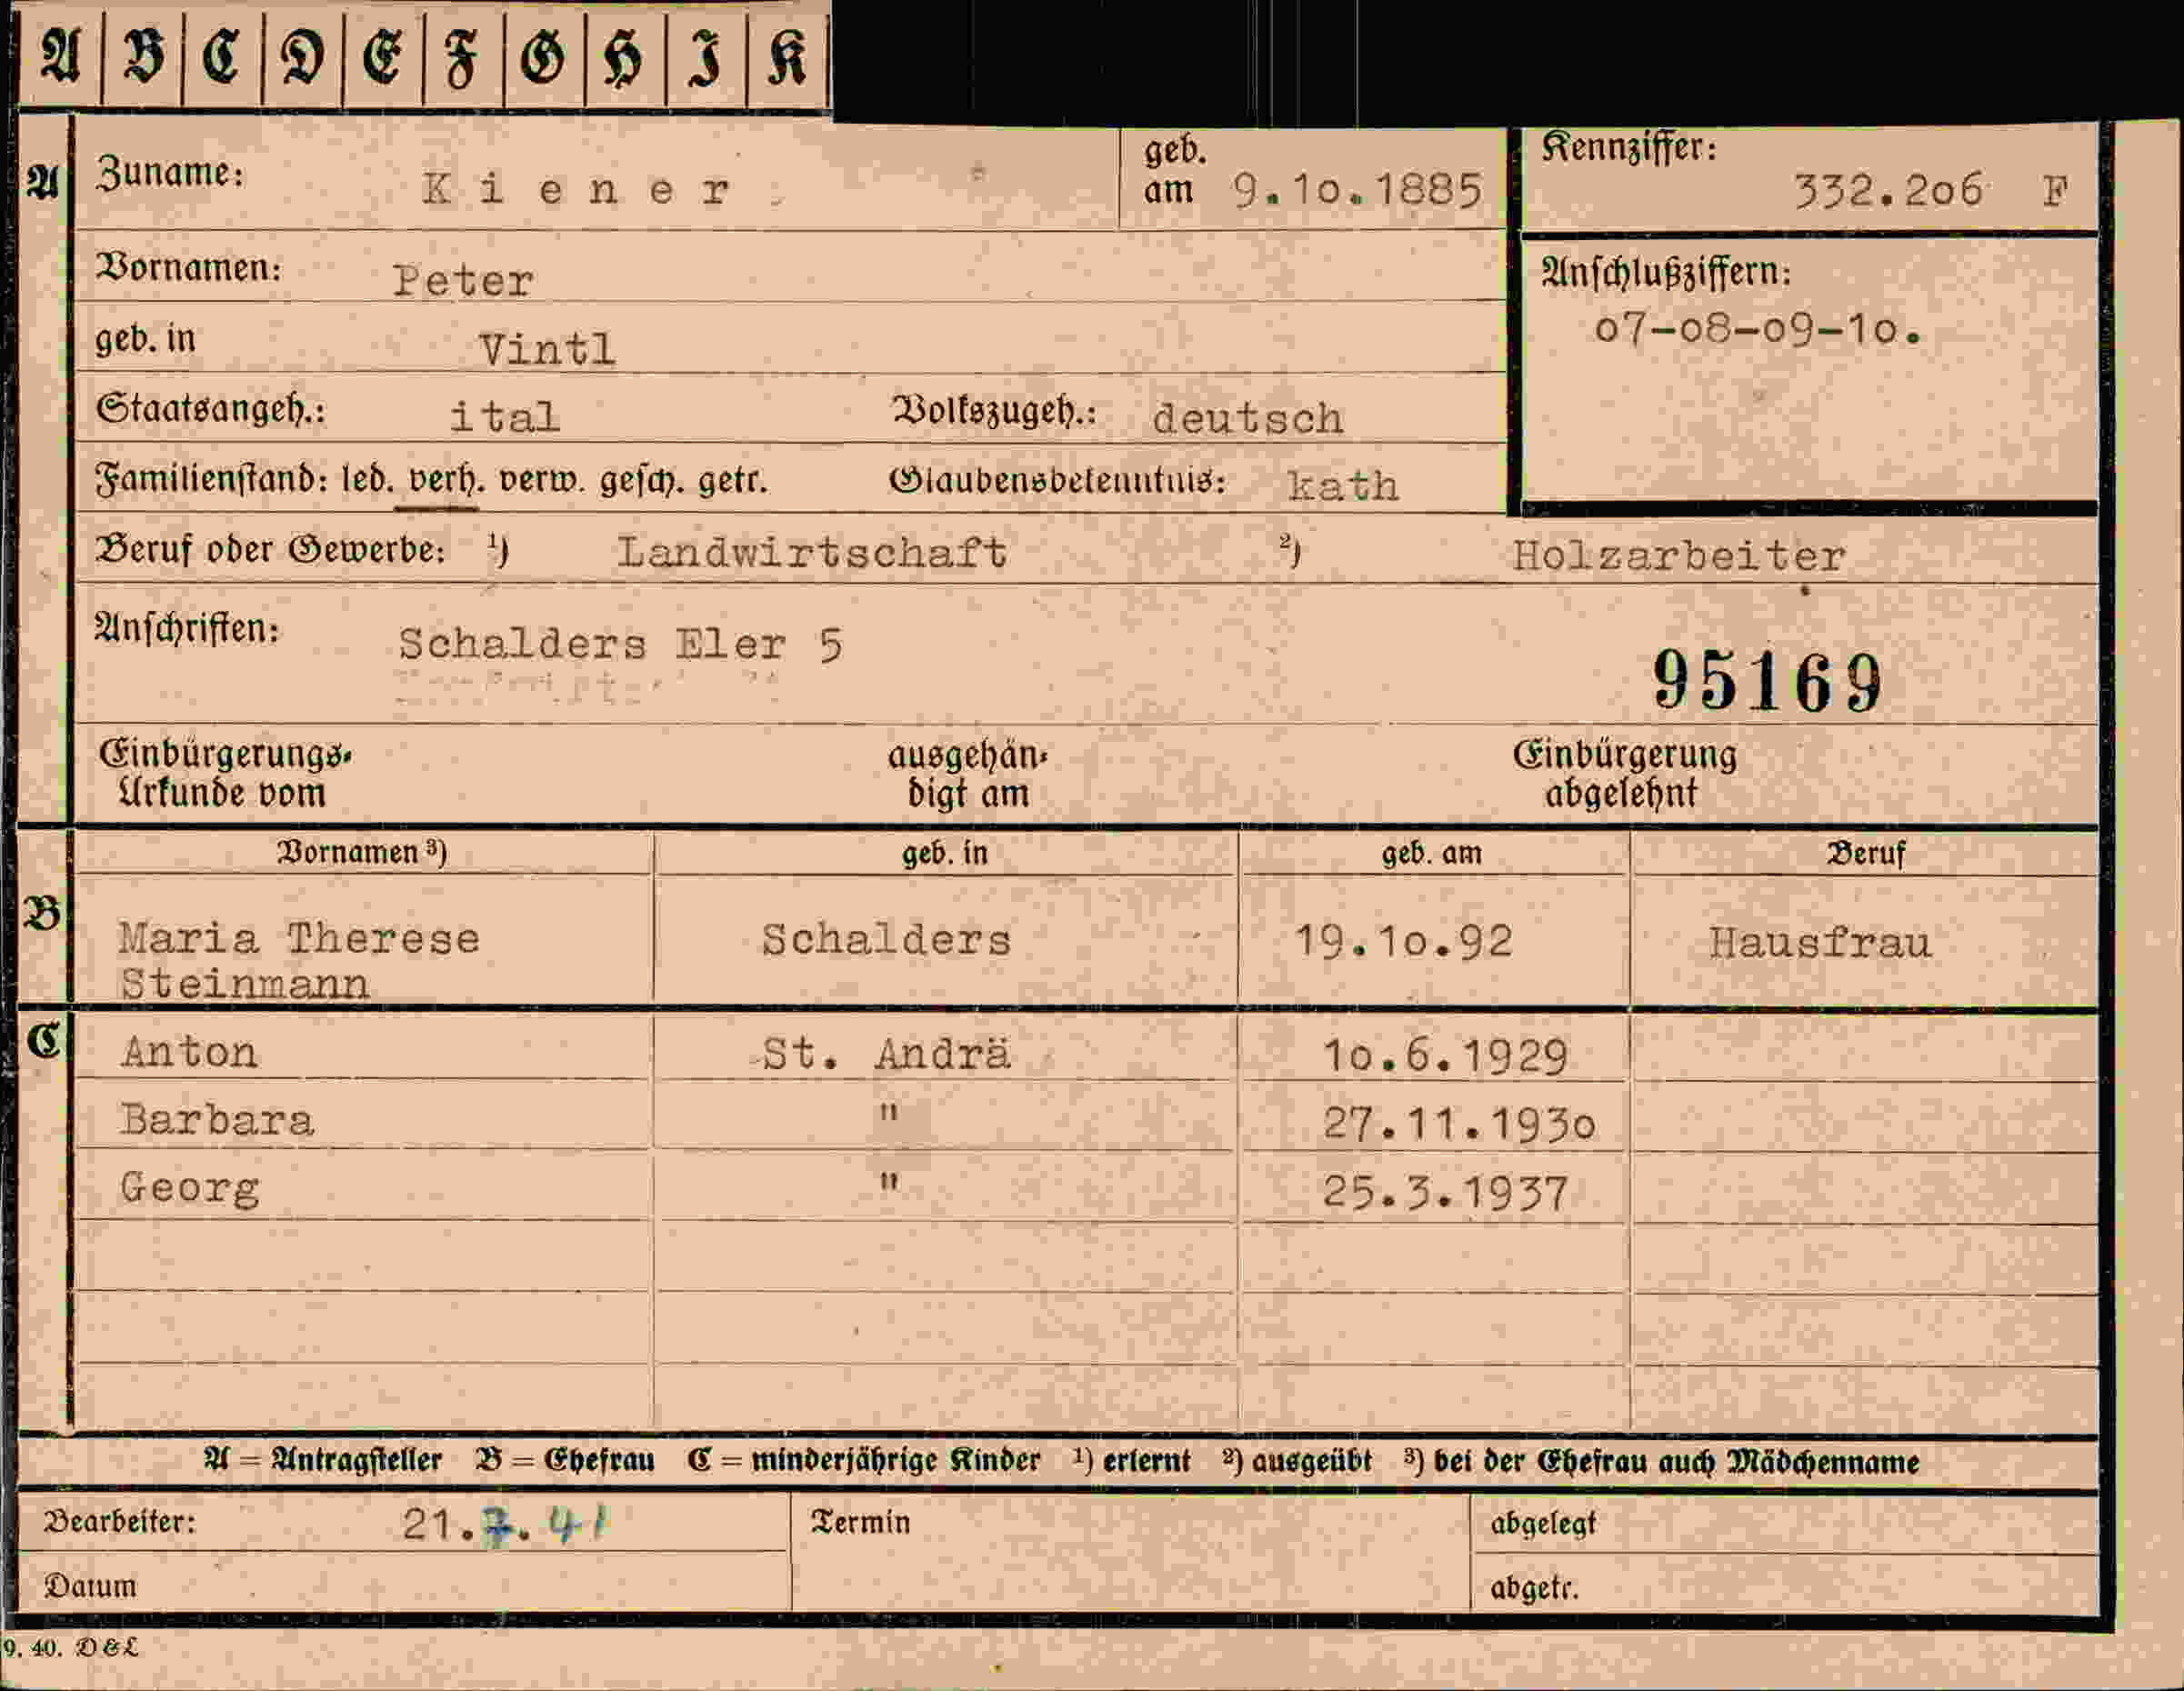 A B C D E F G H I K
A Zuname: Kiener geb. am 9.10.1885 Kennziffer: 332.206 F
Vornamen: Peter Anschlußziffern:
07-08-09-10.
geb. in Vintl
Staatsangeh.: ital Volkszugeh.: deutsch
Familienstand: led. verh. verw. gesch. getr. Glaubensbekenntnis: kath
Beruf oder Gewerbe: 1) Landwirtschaft 2) Holzarbeiter
Anschriften: Schalders Eler 5
95169
Einbürgerungs- ausgehän- Einbürgerung
Urkunde vom digt am abgelehnt
Vornamen 3) geb. in geb. am Beruf
B Maria Therese Schalders 19.10.92 Hausfrau
Steinmann
C Anton St. Andrä 10.6.1929
Barbara " 27.11.1930
Georg " 25.3.1937
A = Antragsteller B = Ehefrau C = minderjährige Kinder 1) erlernt 2) ausgeübt 3) bei der Ehefrau auch Mädchenname
Bearbeiter: 21.7.41 Termin abgelegt
Datum abgetr.
9. 40. D&L